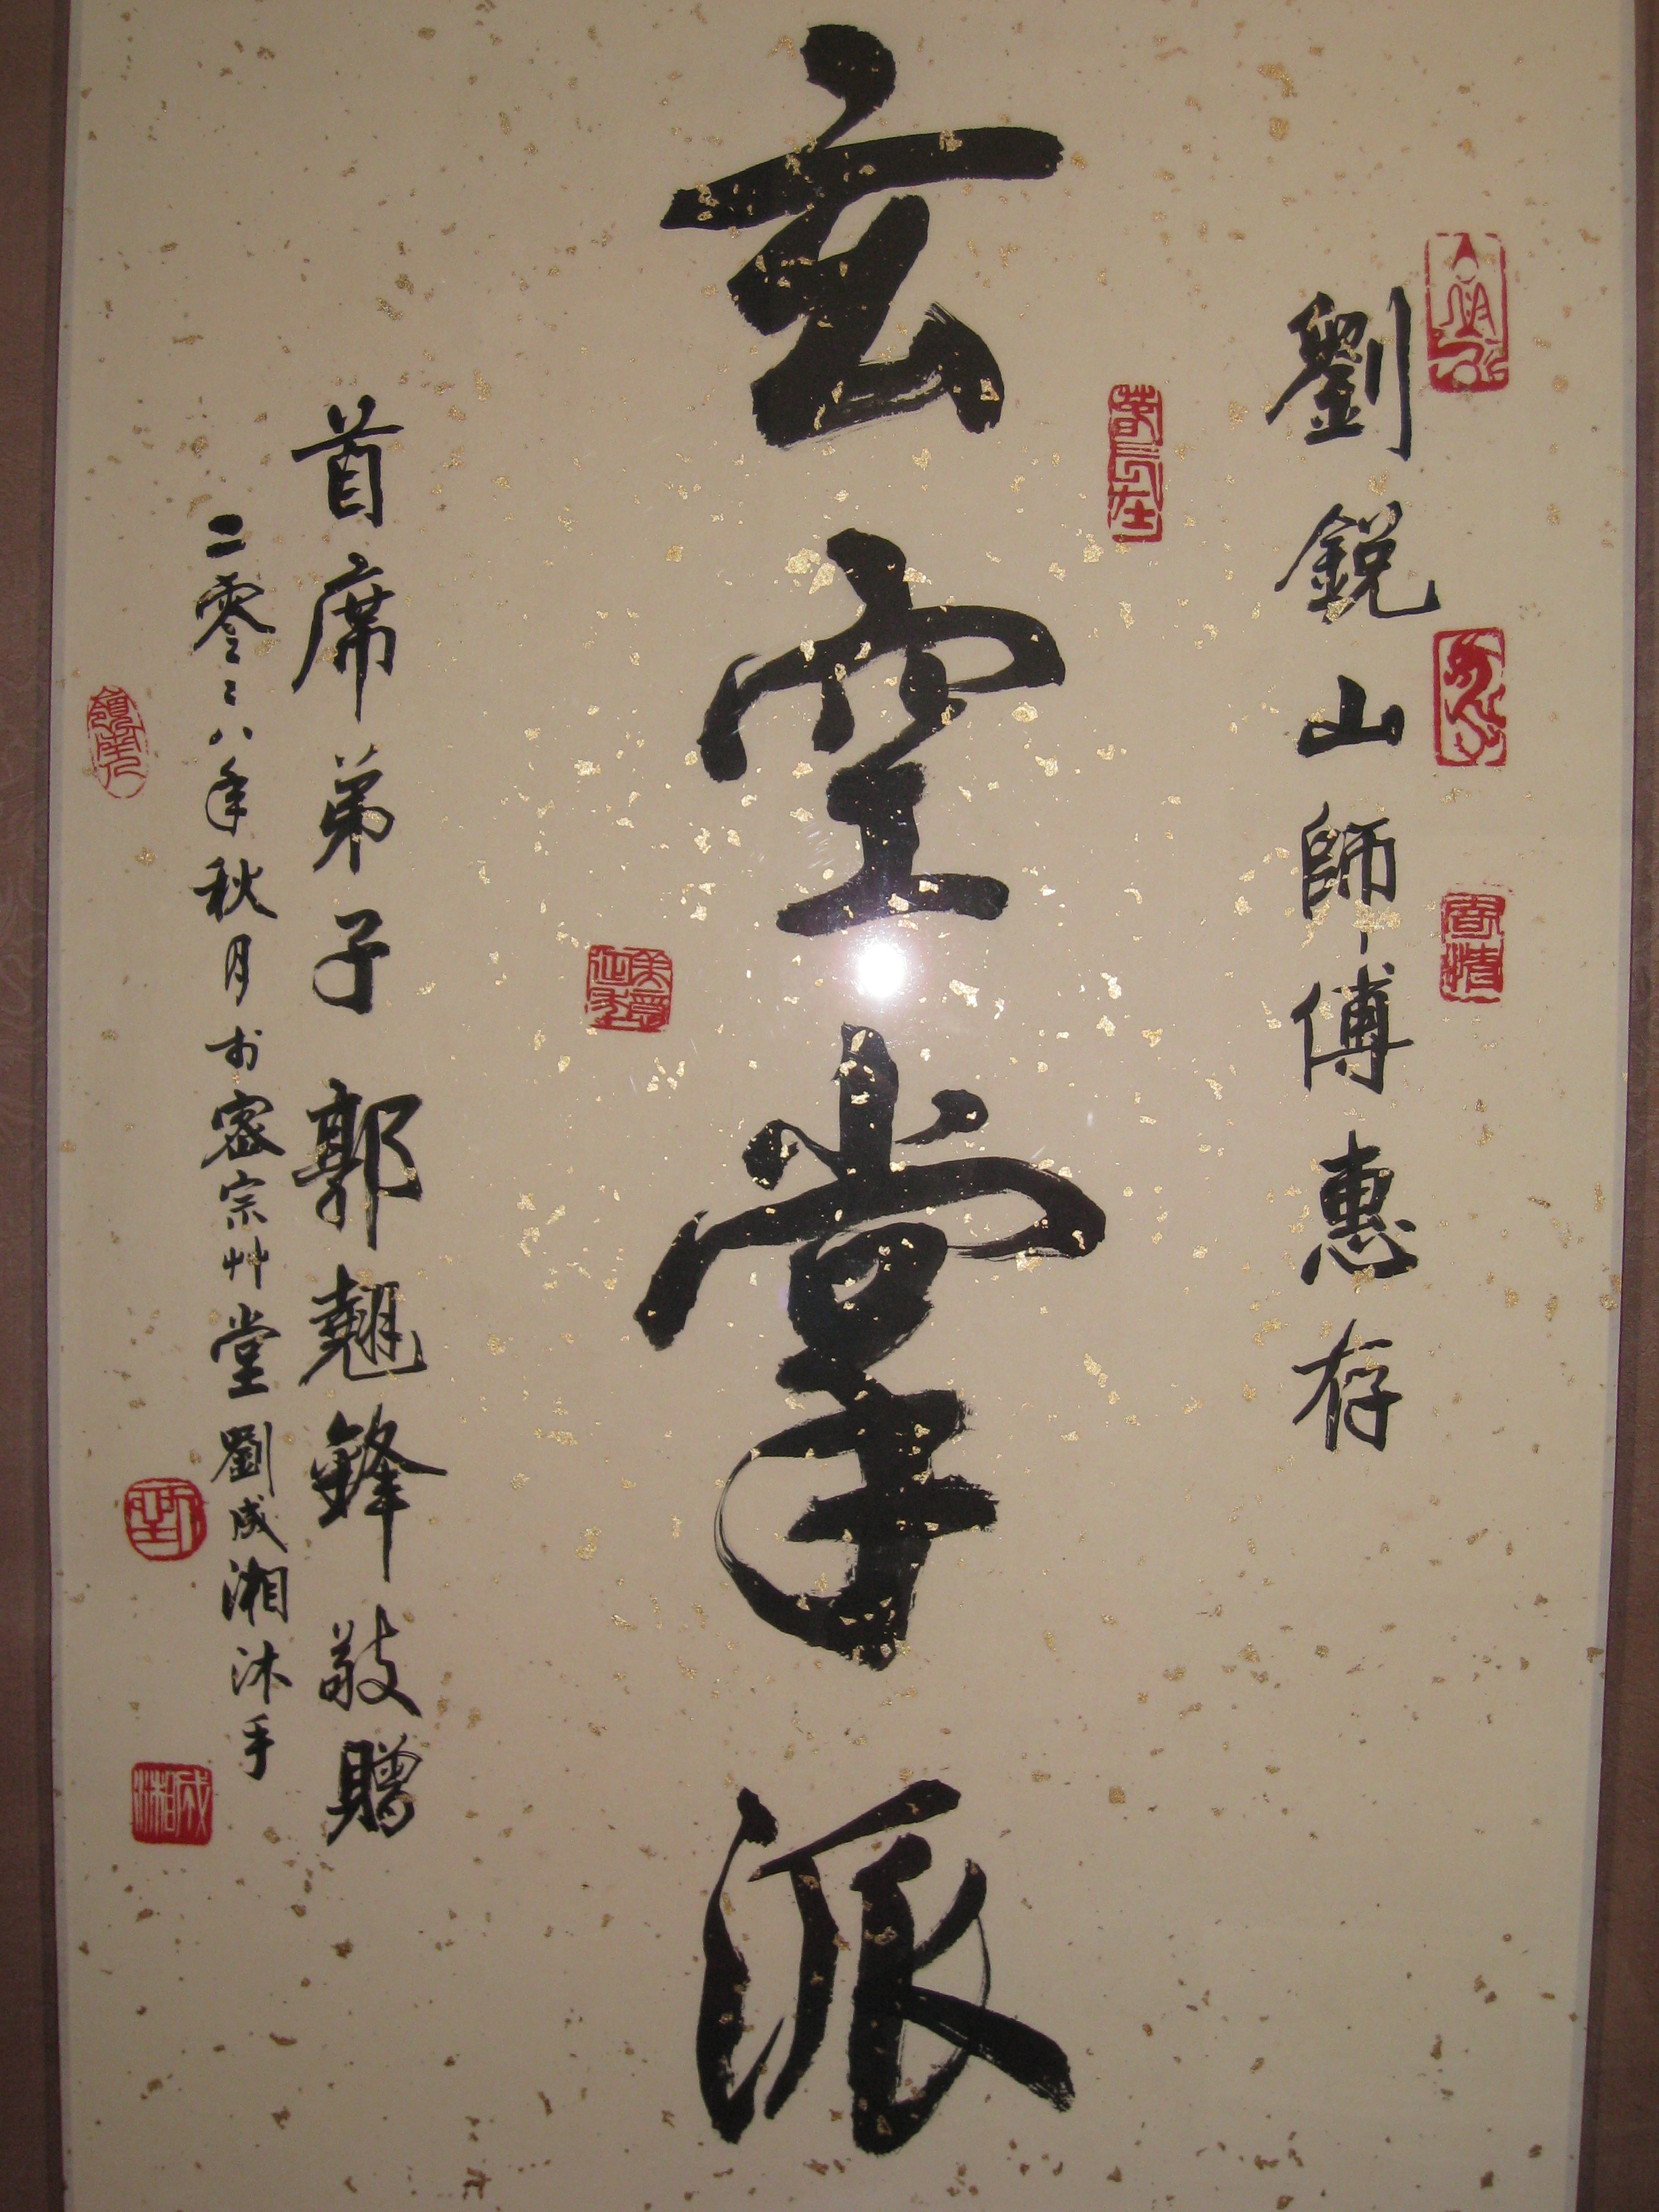 劉銳山師傅惠存
玄空掌派
首席弟子郭翹鋒敬贈
二零零八年秋月於密宗艸堂劉成湘沐手